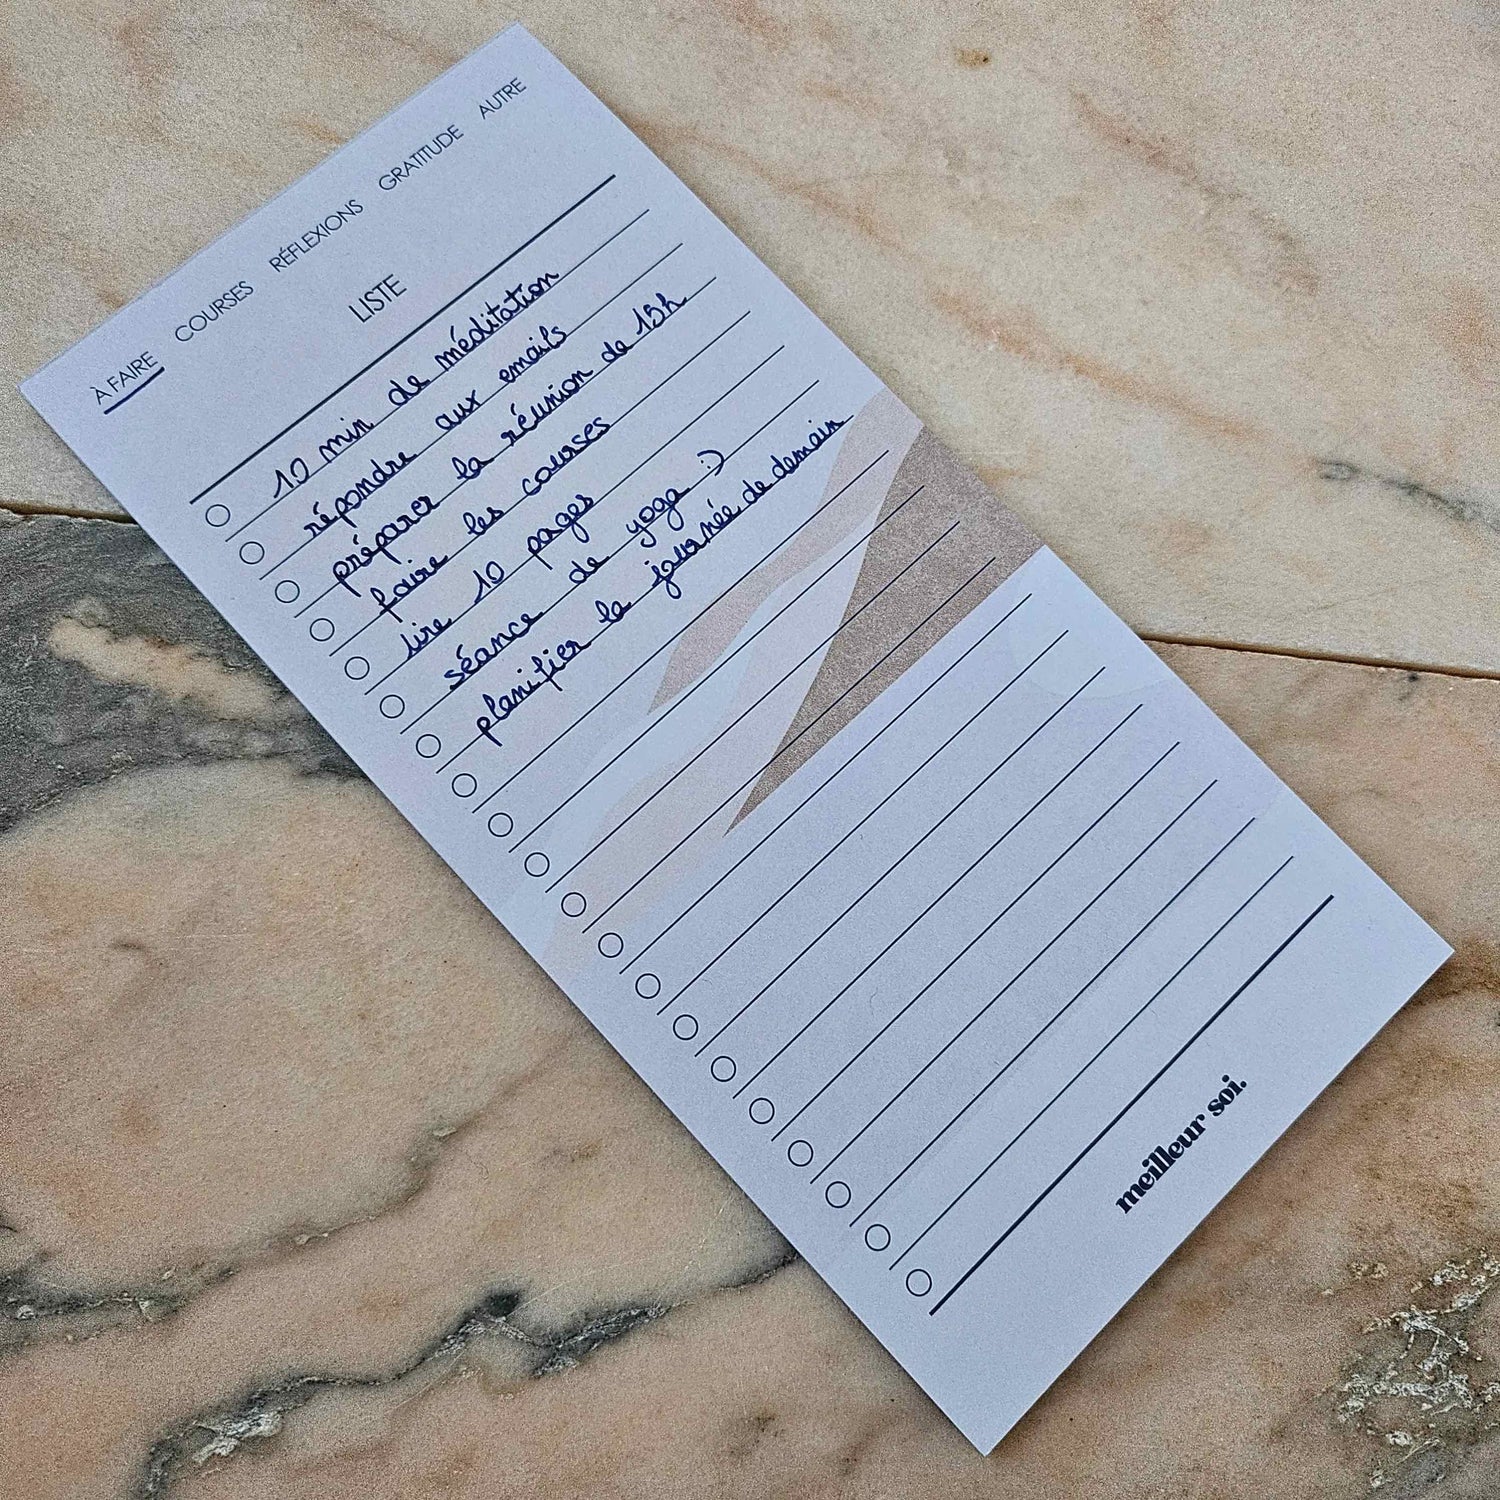 À FAIRE COURSES RÉFLEXIONS GRATITUDE AUTRE
LISTE
10 min de méditation
répondre aux emails
préparer la réunion de 15h
faire les courses
lire 10 pages
séance de yoga :)
planifier la journée de demain
meilleur soi.